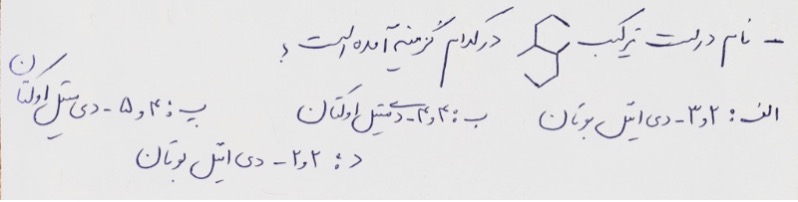 - نام درست ترکیب در کدام گزینه آمده است؟
الف: ۲و۳- دی اتیل بوتان ب: ۴و۴- دی متیل اوکتان پ: ۴و۵- دی متیل اوکتان
د: ۲و۲- دی اتیل بوتان